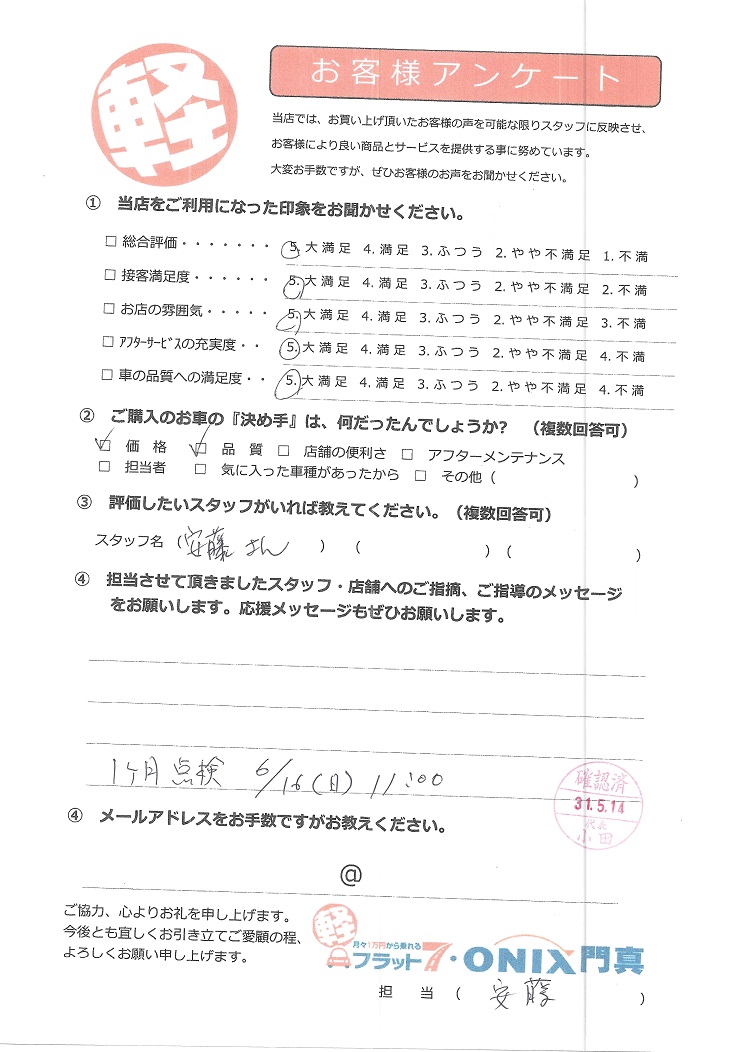 軽
お客様アンケート
当店では、お買い上げ頂いたお客様の声を可能な限りスタッフに反映させ、
お客様により良い商品とサービスを提供する事に努めています。
大変お手数ですが、ぜひお客様のお声をお聞かせください。
① 当店をご利用になった印象をお聞かせください。
□ 総合評価・・・・・・・ 5. 大満足 4. 満足 3. ふつう 2. やや不満足 1. 不満
□ 接客満足度・・・・・・ 5. 大満足 4. 満足 3. ふつう 2. やや不満足 2. 不満
□ お店の雰囲気・・・・・ 5. 大満足 4. 満足 3. ふつう 2. やや不満足 3. 不満
□ ｱﾌﾀｰｻｰﾋﾞｽの充実度・・ 5. 大満足 4. 満足 3. ふつう 2. やや不満足 4. 不満
□ 車の品質への満足度・・ 5. 大満足 4. 満足 3. ふつう 2. やや不満足 4. 不満
② ご購入のお車の『決め手』は、何だったんでしょうか? （複数回答可）
□ 価 格 □ 品 質 □ 店舗の便利さ □ アフターメンテナンス
□ 担当者 □ 気に入った車種があったから □ その他（ ）
③ 評価したいスタッフがいれば教えてください。（複数回答可）
スタッフ名（安藤さん ）（ ）（ ）
④ 担当させて頂きましたスタッフ・店舗へのご指摘、ご指導のメッセージ
をお願いします。応援メッセージもぜひお願いします。
1ヶ月点検 6/16(日) 11:00
確認済
31.5.14
代表
小田
④ メールアドレスをお手数ですがお教えください。
@
ご協力、心よりお礼を申し上げます。
今後とも宜しくお引き立てご愛顧の程、
よろしくお願い申し上げます。
軽
月々1万円から乗れる
フラット7・ONIX門真
担 当 （ 安藤 ）